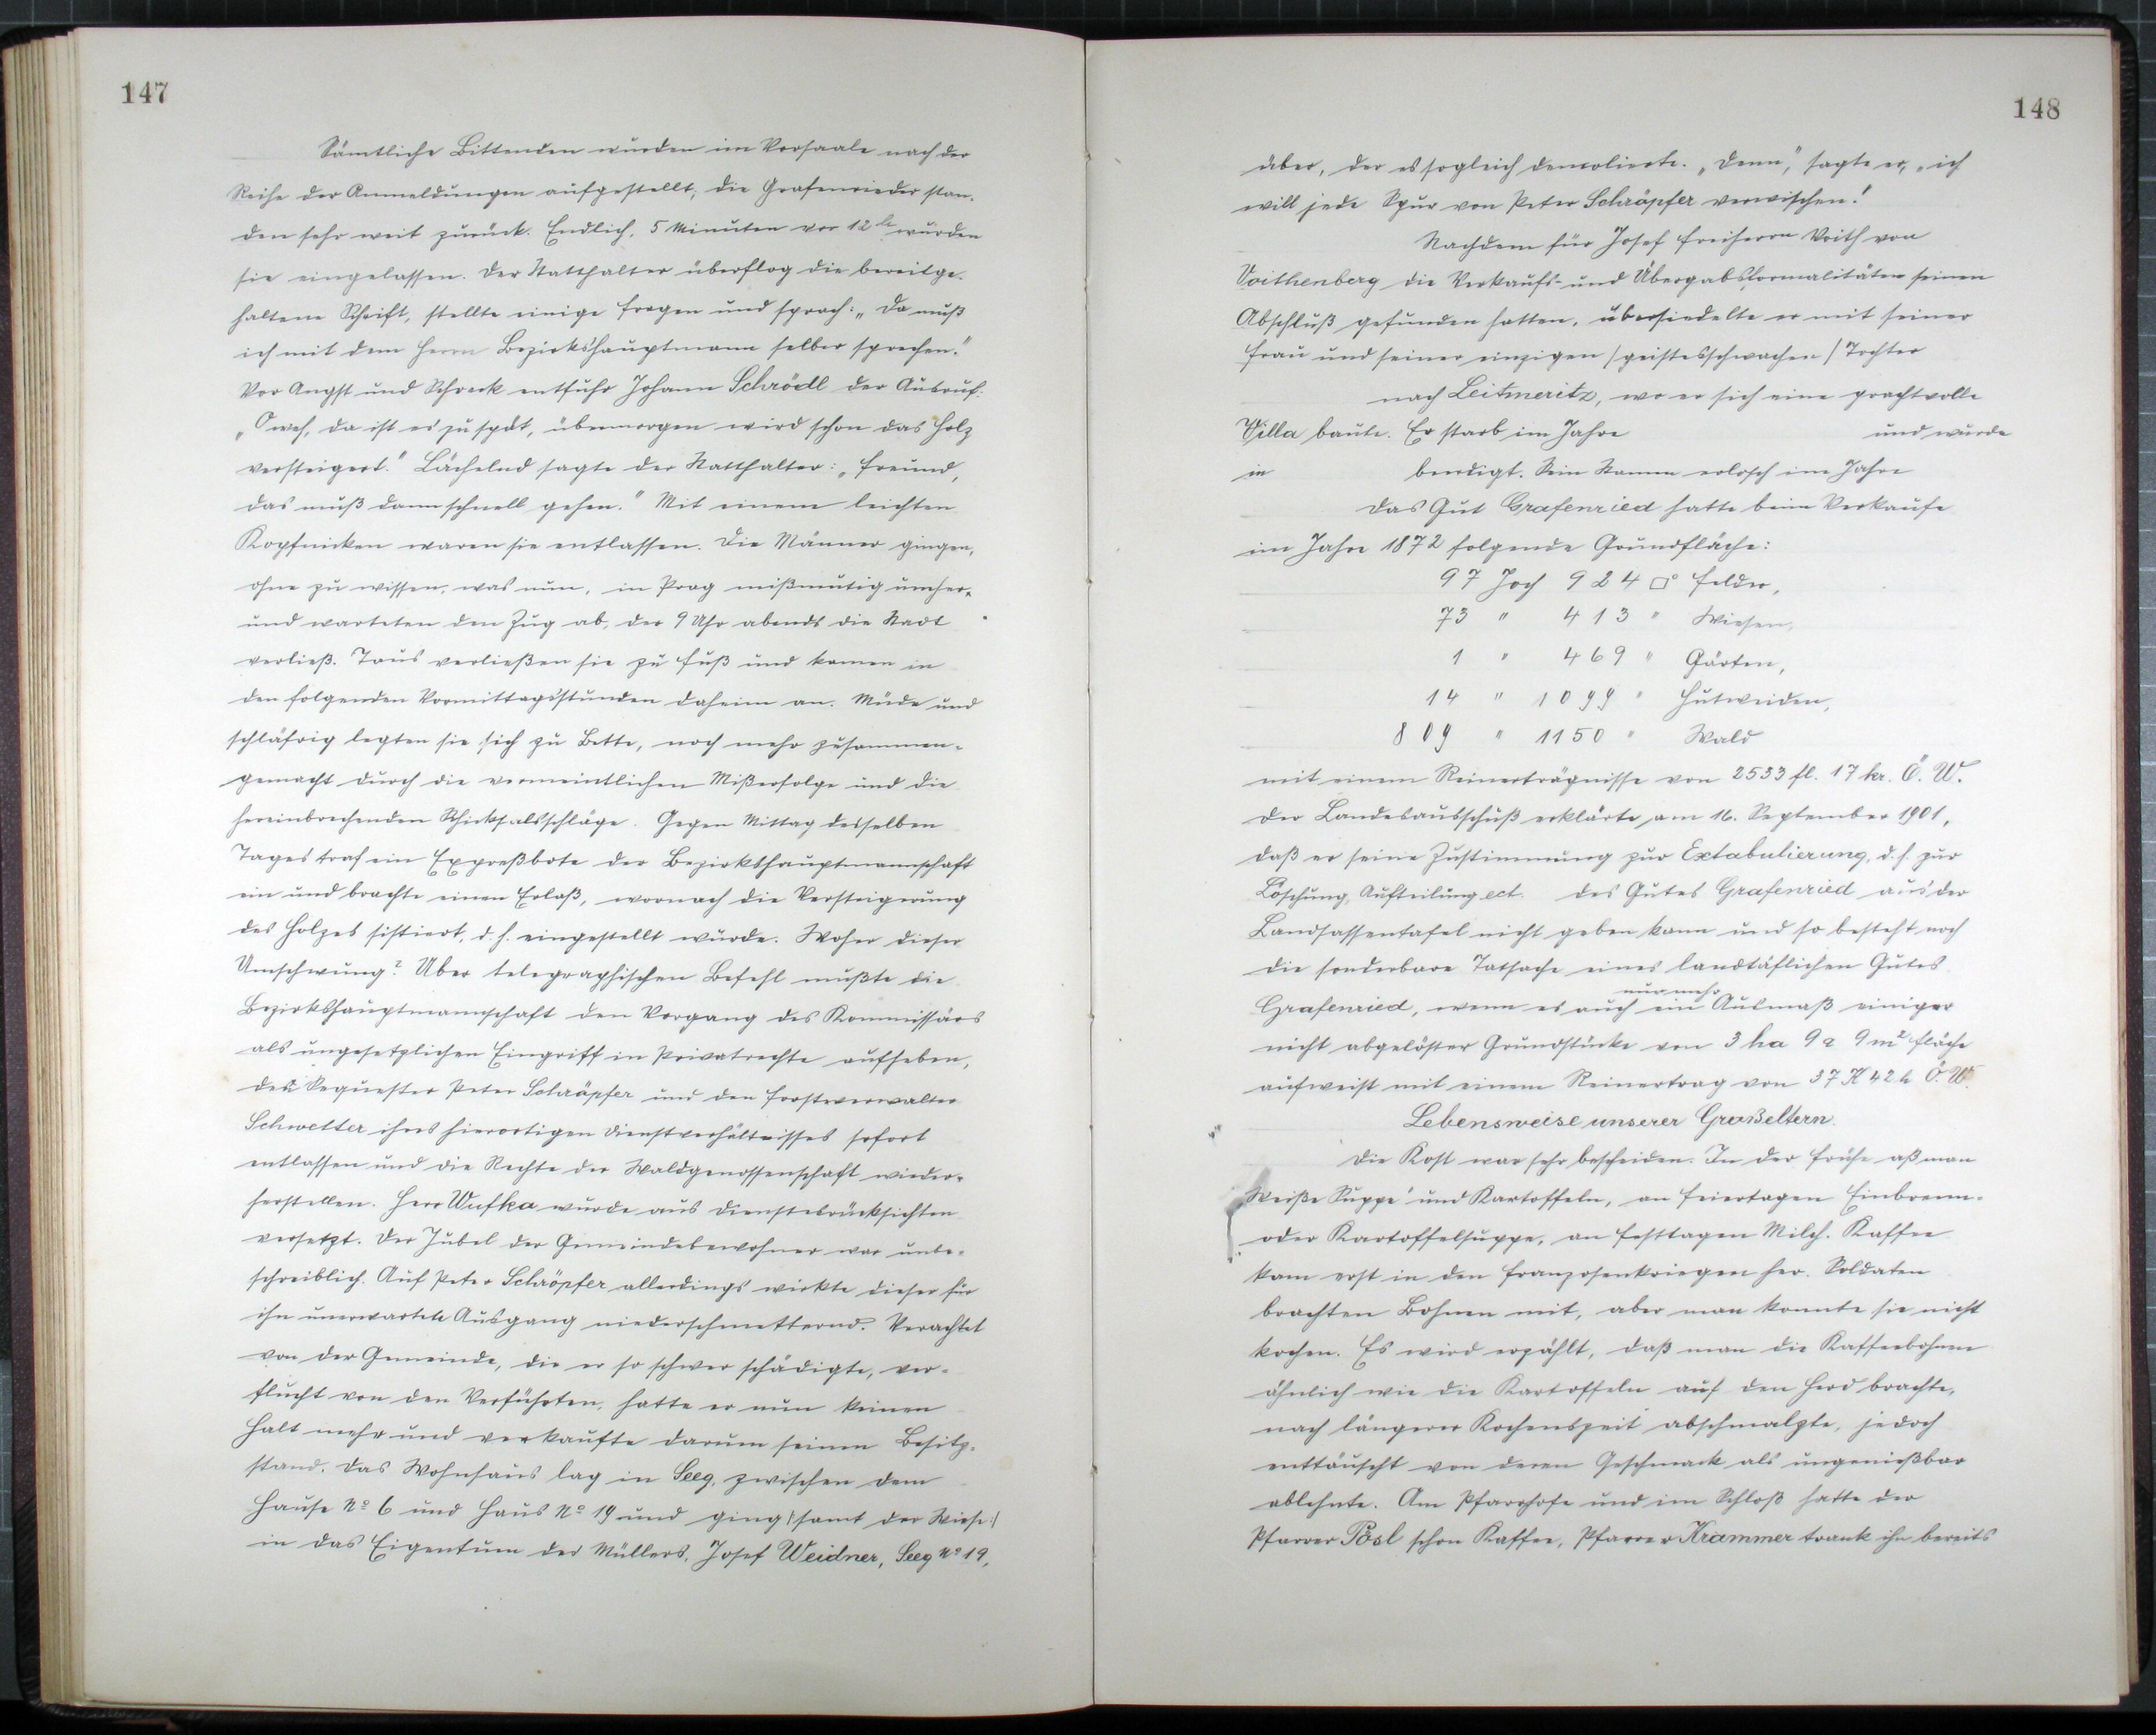 147
Sämtliche Bittenden wurden im Vorsaale nach der
Reihe der Anmeldungen aufgestellt; die Grafenrieder stan-
den sehr weit zurück. Endlich, 5 Minuten vor 12h wurden
sie eingelassen. Der Statthalter überflog die bereitge-
haltene Schrift, stellte einige Fragen und sprach: „Da muß
ich mit dem Herrn Bezirkshauptmann selber sprechen."
Vor Angst und Schreck entfuhr Johann Schrödl der Ausruf:
„O weh, da ist es zu spät, übermorgen wird schon das Holz
versteigert." Lächelnd sagte der Statthalter: „Freund,
das muß dann schnell gehen." Mit einem leichten
Kopfnicken waren sie entlassen. Die Männer gingen,
ohne zu wissen, was nun, in Prag mißmutig umher
und warteten den Zug ab, der 9 Uhr abends die Stadt
verließ. Taus verließen sie zu Fuß und kamen in
den folgenden Vormittagsstunden daheim an. Müde und
schläfrig legten sie sich zu Bette, noch mehr zusammen-
gemacht durch die vermeintlichen Mißerfolge und die
hereinbrechenden Schicksalsschläge. Gegen Mittag desselben
Tages traf ein Expreßbote der Bezirkshauptmannschaft
ein und brachte einen Erlaß, wornach die Versteigerung
des Holzes sistiert, d. h. eingestellt würde. Woher dieser
Umschwung? Über telegraphischen Befehl mußte die
Bezirkshauptmannschaft den Vorgang des Kommissärs
als ungesetzlichen Eingriff in Privatrechte aufheben,
den Sequester Peter Schröpfer und den Forstverwalter
Schwetter ihres hierortigen Dienstverhältnisses sofort
entlassen und die Rechte der Waldgenossenschaft wieder-
herstellen. Herr Wufka wurde aus Dienstesrücksichten
versetzt. Der Jubel der Gemeindebewohner war unbe-
schreiblich. Auf Peter Schröpfer allerdings wirkte dieser für
ihn unerwartete Ausgang niederschmetternd. Verachtet
von der Gemeinde, die er so schwer schädigte, ver-
flucht von den Verführten, hatte er nun keinen
Halt mehr und verkaufte darum seinen Besitz-
stand. Das Wohnhaus lag in Seeg, zwischen dem
Hause No 6 und Haus No 19 und ging /:samt der Wiese:/
in das Eigentum des Müllers, Josef Weidner, Seeg No 19,
148
über, der es sogleich demolierte. „Denn", sagte er, „ich
will jede Spur von Peter Schröpfer verwischen!"
Nachdem für Josef Freiherrn Voith von
Voithenberg die Verkaufs- und Übergabsformalitäten seinen
Abschluß gefunden hatten, übersiedelte er mit seiner
Frau und seiner einzigen /geistesschwachen/ Tochter
nach Leitmeritz, wo er sich eine prachtvolle
Villa baute. Er starb im Jahre und wurde
in beerdigt. Sein Stamm erlosch im Jahre
Das Gut Grafenried hatte beim Verkaufe
im Jahre 1872 folgende Grundfläche:
97 Joch 924 □° Felder,
73 " 413 " Wiesen,
1 " 469 " Gärten,
14 " 1099 " Hutweiden,
809 " 1150 " Wald
mit einem Reinerträgnisse von 2533 fl. 17 kr. Ö. W.
Der Landesausschuß erklärte am 16. September 1901,
daß er seine Zustimmung zur Extabulierung, d. h. zur
Löschung, Aufteilung ect. des Gutes Grafenried aus der
Landsassentafel nicht geben kann und so besteht noch
die sonderbare Tatsache eines landtäflichen Gutes
Grafenried, wenn es auch nur mehr ein Ausmaß einiger
nicht abgelöster Grundstücke von 3 ha 9 a 9 m² Fläche
aufweist mit einem Reinertrag von 37 K 42 h Ö. W.
Lebensweise unserer Großeltern.
Die Kost war sehr bescheiden. In der Frühe aß man
„Weiße Suppe" und Kartoffeln, an Feiertagen Einbrenn-
oder Kartoffelsuppe, an Festtagen Milch. Kaffee
kam erst in den Franzosenkriegen her. Soldaten
brachten Bohnen mit, aber man konnte sie nicht
kochen. Es wird erzählt, daß man die Kaffeebohnen
ähnlich wie die Kartoffeln auf den Herd brachte,
nach längerer Kochenszeit abschmalzte, jedoch
enttäuscht von deren Geschmack als ungenießbar
ablehnte. Am Pfarrhofe und im Schloß hatte der
Pfarrer Pösl schon Kaffee, Pfarrer Krammer trank ihn bereits